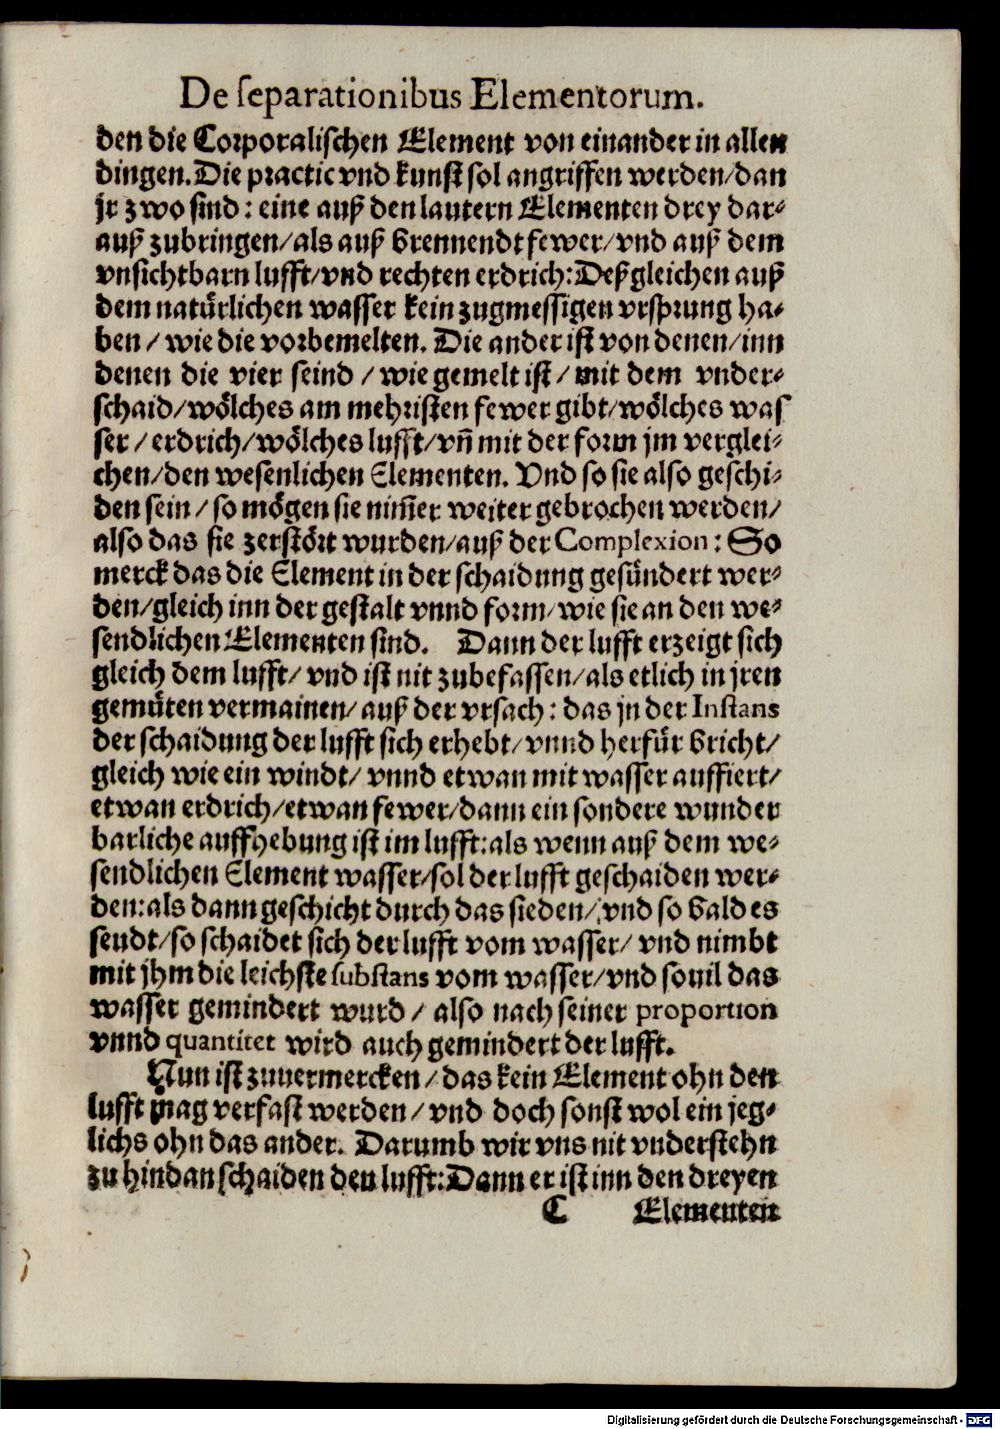 De ſeparationibus Elementorum.
den die Corporaliſchen Element von einander in allen
dingen. Die practic vnd kunſt ſol angriffen werden/dan
jr zwo ſind: eine auß den lautern Elementen drey dar⸗
auß zubringen/als auß brennendt fewer/vnd auß dem
vnſichtbarn lufft/vnd rechten erdrich: Deßgleichen auß
dem natürlichen waſſer kein zugmeſſigen vrſprung ha⸗
ben/wie die vorbemelten. Die ander iſt von denen/inn
denen die vier ſeind/wie gemelt iſt/mit dem vnder⸗
ſchaid/wölches am mehriſten fewer gibt/wölches waſ
ſer/erdrich/wölches lufft/vñ mit der form jm verglei⸗
chen/den weſenlichen Elementen. Vnd ſo ſie alſo geſchi⸗
den ſein/ſo mögen ſie nim̃er weiter gebrochen werden/
alſo das ſie zerſtört wurden/auß der Complexion: So
merck das die Element in der ſchaidung geſündert wer⸗
den/gleich inn der geſtalt vnnd form/wie ſie an den we⸗
ſendlichen Elementen ſind. Dann der lufft erzeigt ſich
gleich dem lufft/vnd iſt nit zubefaſſen/als etlich in jren
gemüten vermainen/auß der vrſach: das jn der Inſtans
der ſchaidung der lufft ſich erhebt/vnnd herfür bricht/
gleich wie ein windt/vnnd etwan mit waſſer auffiert/
etwan erdrich/etwan fewer/dann ein ſondere wunder
barliche auffhebung iſt im lufft: als wenn auß dem we⸗
ſendlichen Element waſſer/ſol der lufft geſchaiden wer⸗
den: als dann geſchicht durch das ſieden/vnd ſo bald es
ſeudt/ſo ſchaidet ſich der lufft vom waſſer/vnd nimbt
mit jhm die leichſte ſubſtans vom waſſer/vnd ſouil das
waſſer gemindert wurd/alſo nach ſeiner proportion
vnnd quantitet wird auch gemindert der lufft.
Nun iſt zuuermercken/das kein Element ohn den
lufft mag verfaſt werden/vnd doch ſonſt wol ein jeg⸗
lichs ohn das ander. Darumb wir vns nit vnderſtehn
zu hindan ſchaiden den lufft: Dann er iſt inn den dreyen
C Elementen
Digitalisierung gefördert durch die Deutsche Forschungsgemeinschaft - DFG